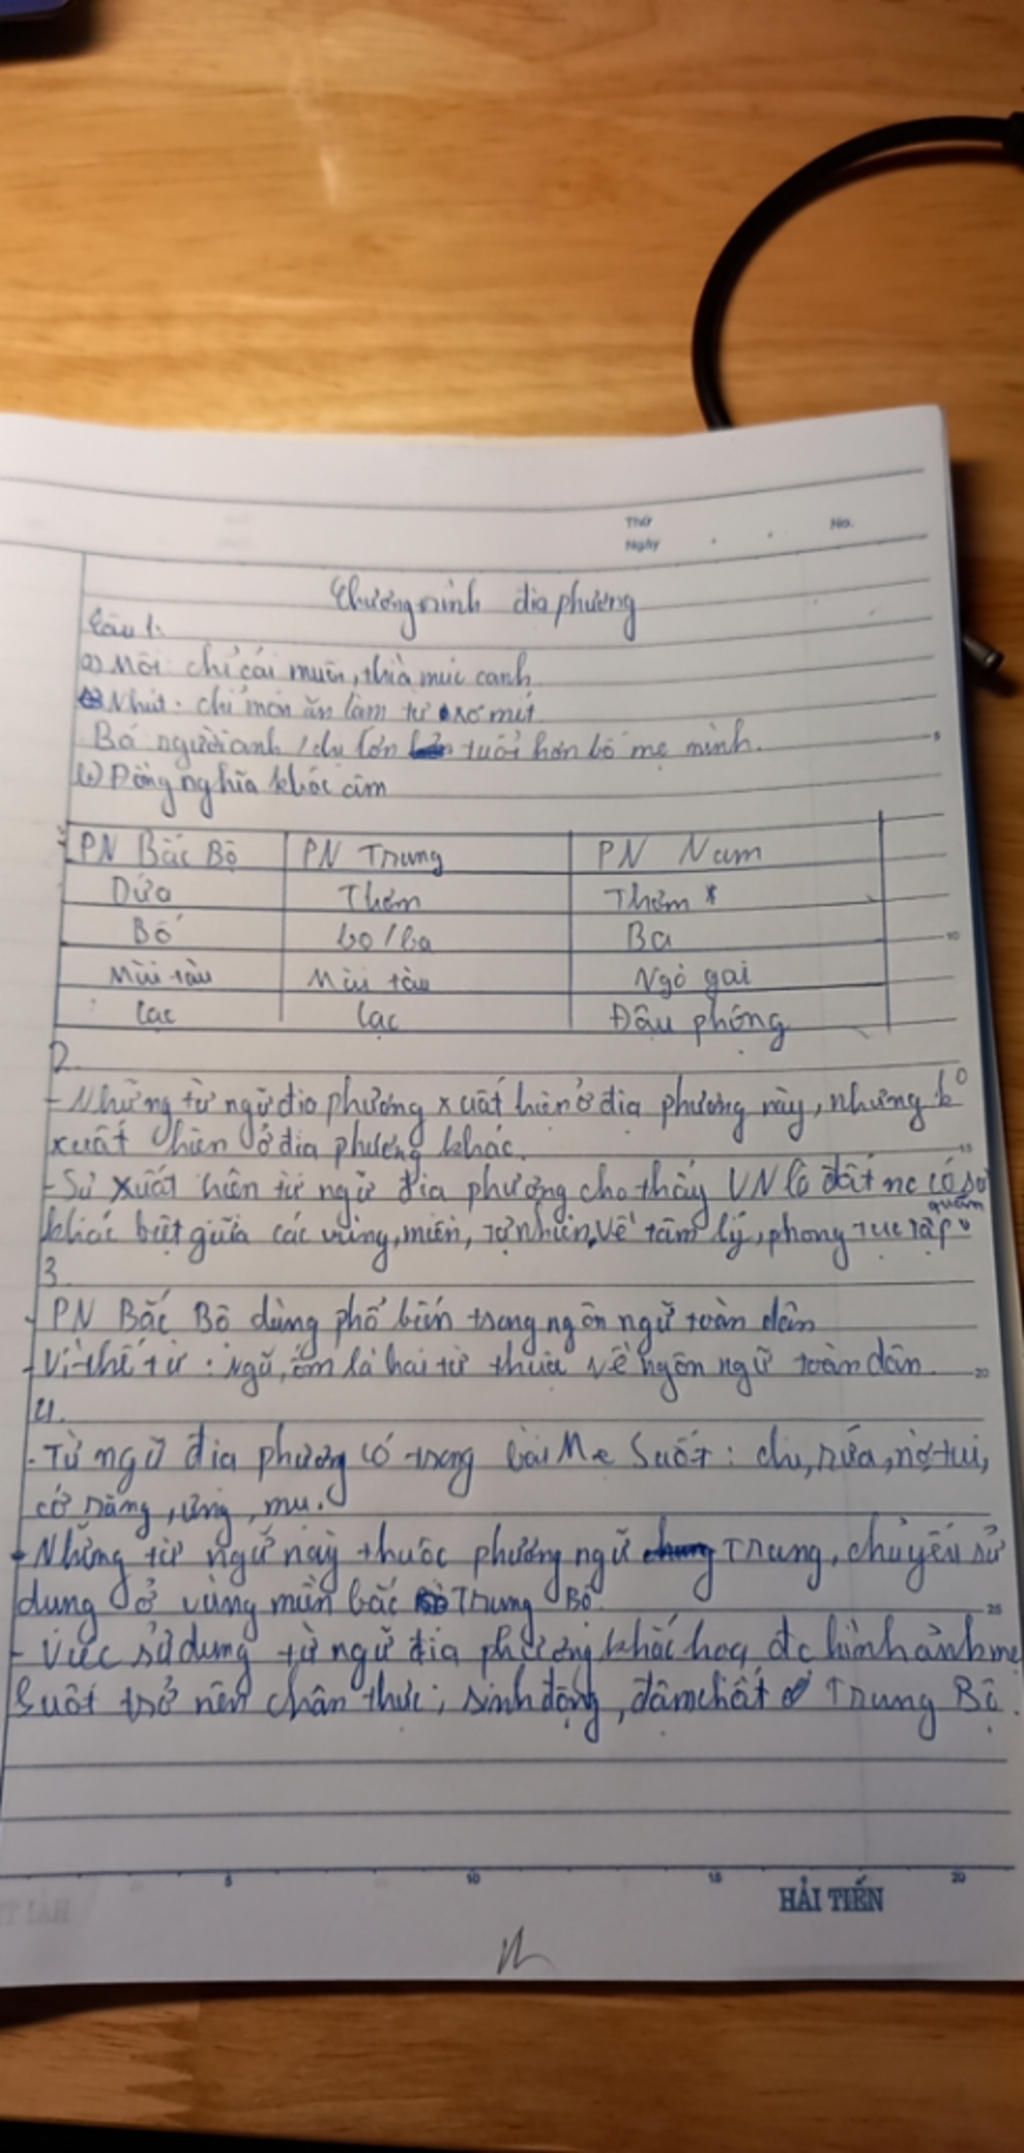 Thứ No.
Ngày
Chương trình địa phương
Câu 1.
a) Môi: chỉ cái muôi, thìa múc canh
Nhút: chỉ món ăn làm từ xơ mít
Bá người anh / chị lớn tuổi hơn bố mẹ mình.
b) Đồng nghĩa khác âm
PN Bắc Bộ PN Trung PN Nam
Dứa Thơm Thơm *
Bố bo / ba Ba
Mùi tàu Mùi tàu Ngò gai
Lạc Lạc Đậu phộng
2.
- Những từ ngữ địa phương xuất hiện ở địa phương này, nhưng k⁰
xuất hiện ở địa phương khác.
- Sự xuất hiện từ ngữ địa phương cho thấy VN là đất nc có sự
khác biệt giữa các vùng, miền, tự nhiên, về tâm lý, phong tục tập quán
3.
- PN Bắc Bộ dùng phổ biến trong ngôn ngữ toàn dân
- Vì thế từ: ngã, ốm là hai từ thuộc về ngôn ngữ toàn dân.
4.
- Từ ngữ địa phương có trong bài Mẹ Suốt: chi, rứa, nờ, tui,
cớ răng, ưng, mụ.
- Những từ ngữ này thuộc phương ngữ Trung, chuyên sử
dụng ở vùng miền bắc Trung Bộ.
- Việc sử dụng từ ngữ địa phương khắc hoạ đc hình ảnh mẹ
Suốt trở nên chân thực, sinh động, đậm chất Trung Bộ.
5 10 15 20
HẢI TIẾN